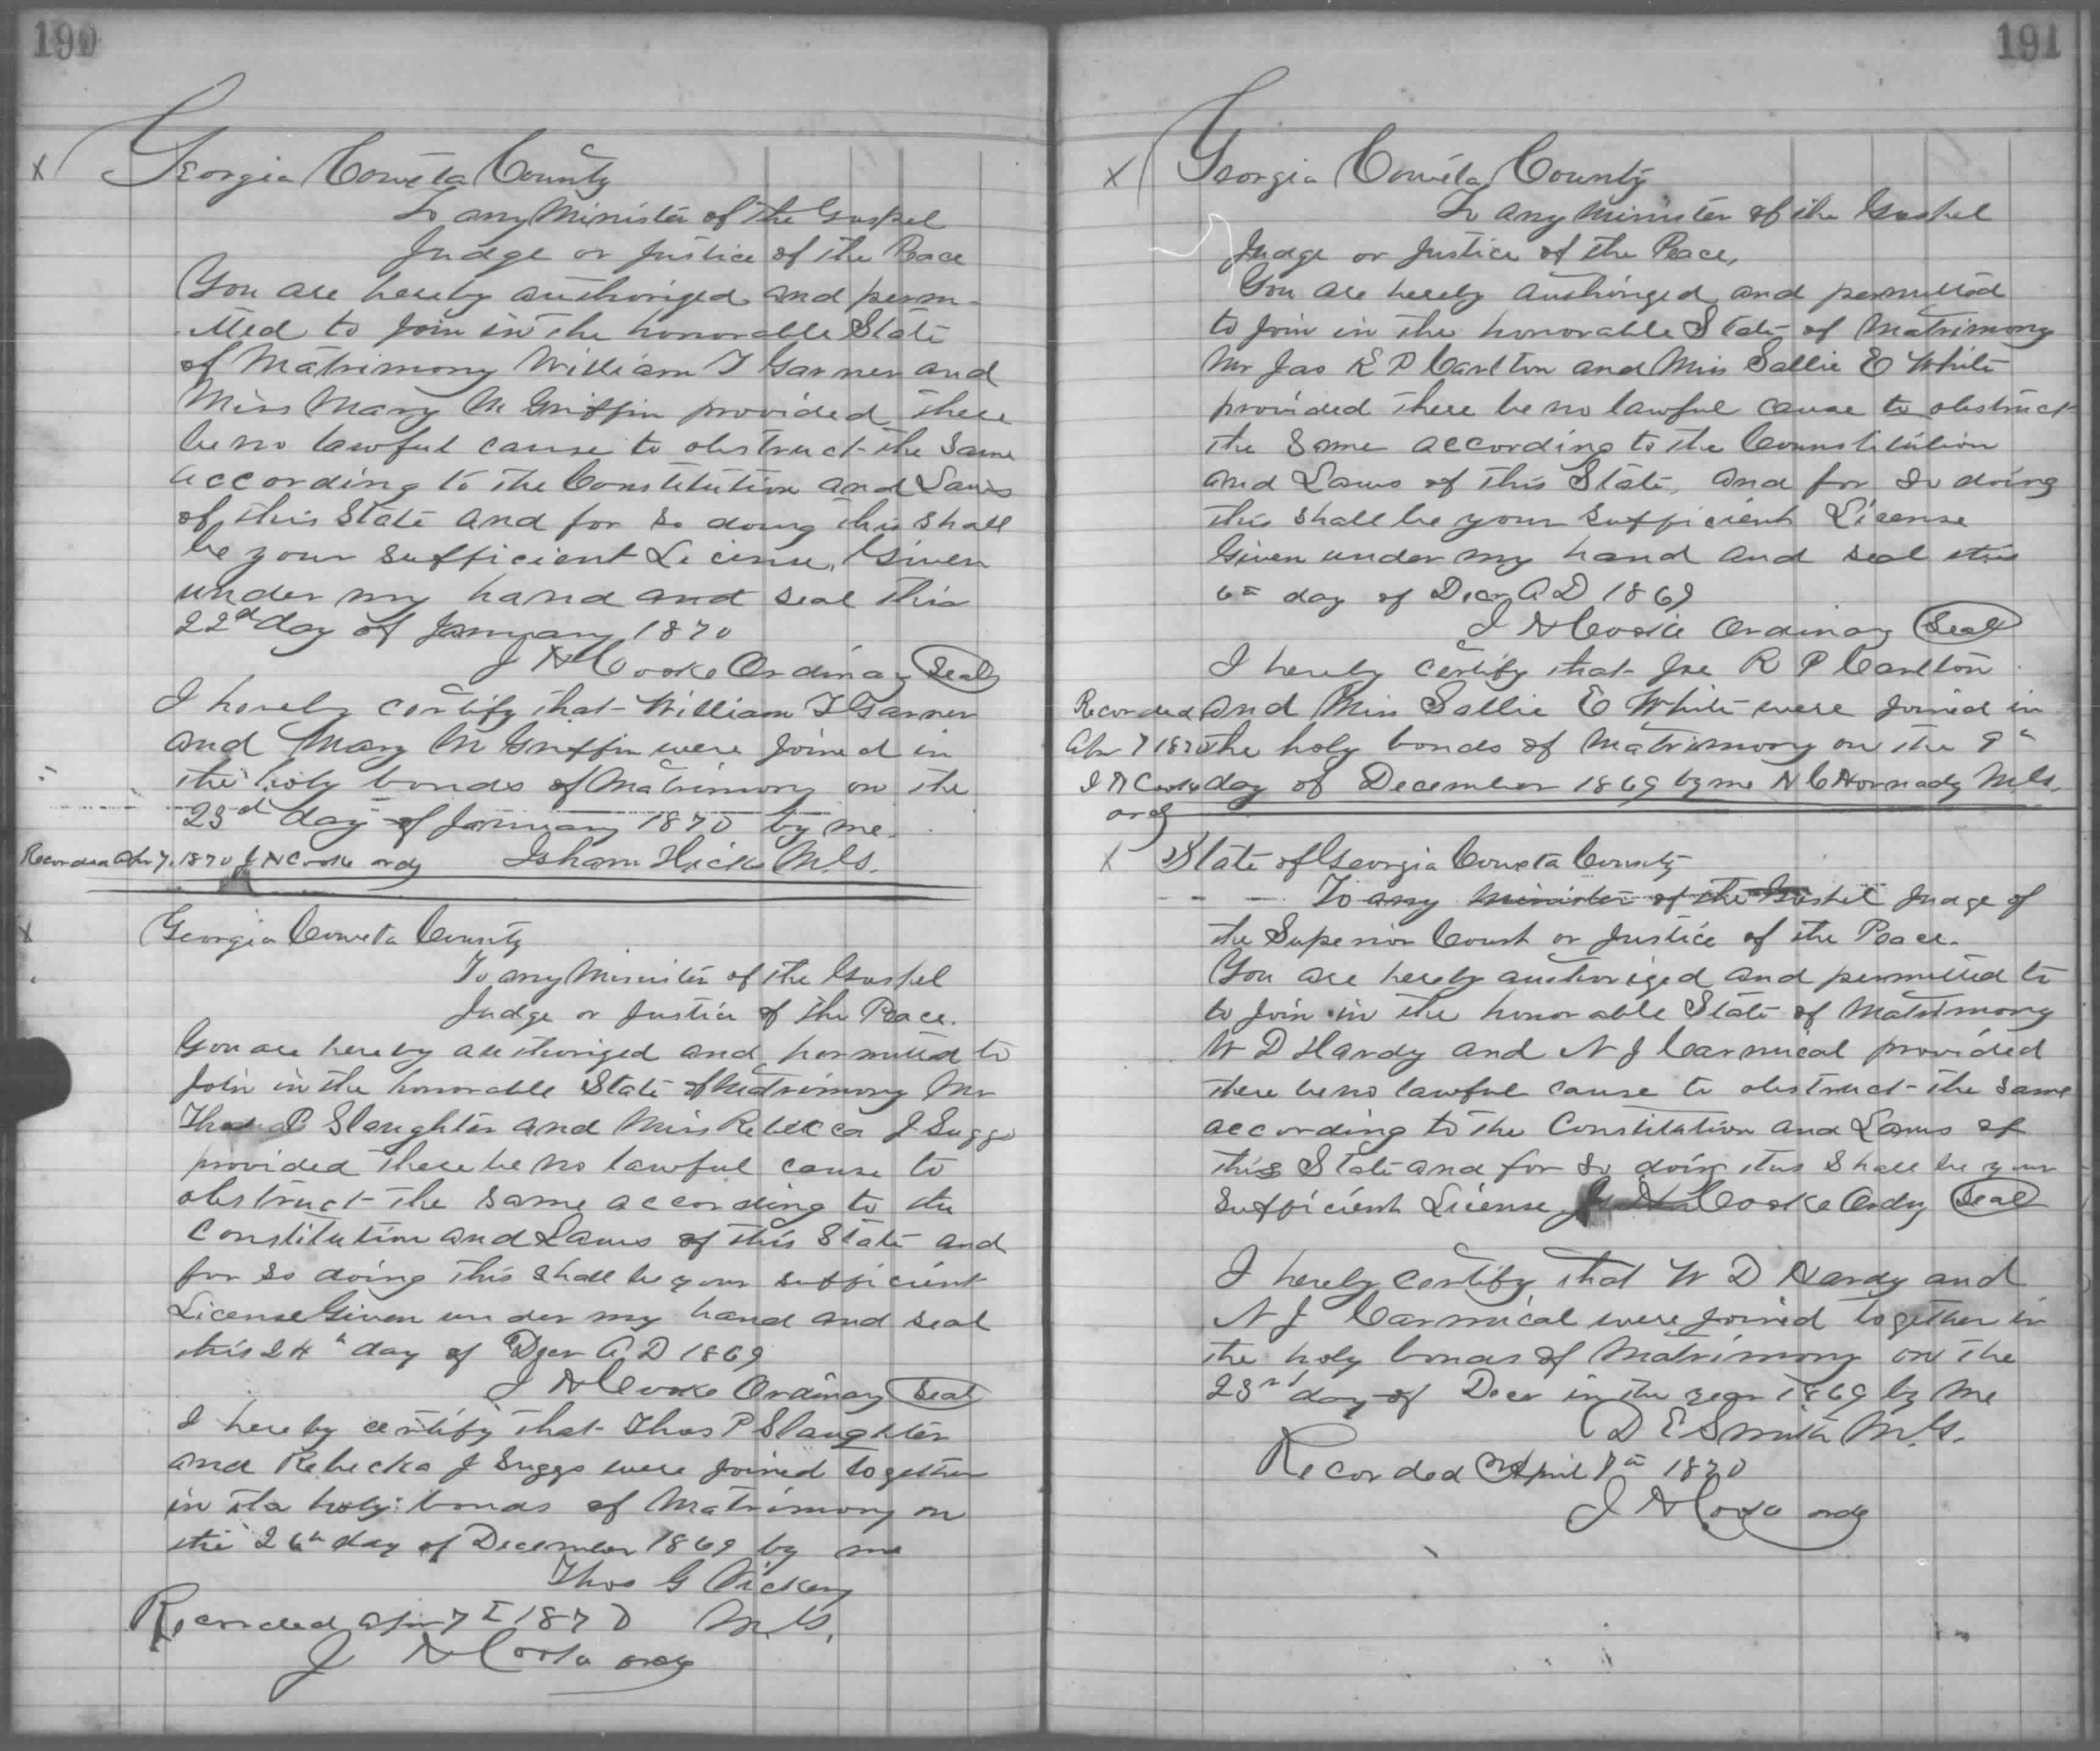 190
Georgia Coweta County
To any Minister of the Gospel
Judge or Justice of the Peace
You are hereby authorized and perm-
itted to Join in the honorable State
of Matrimony William T Garner and
Miss Mary M Griffin provided there
be no lawful cause to obstruct the Same
according to the Constitution and Laws
of this State and for so doing this shall
be your sufficient License, Given
under my hand and seal this
22d day of January 1870
J N Cooke Ordinary Seal
I hereby certify that William T Garner
and Mary M Griffin were Joined in
the holy bonds of Matrimony on the
23d day of January 1870 by me.
Recorded Apr 7, 1870 J N Cooke ordy Isham Hicks M.G.
Georgia Coweta County
To any Minister of the Gospel
Judge or Justice of the Peace.
You are hereby authorized and permitted to
Join in the honorable State of Matrimony Mr
Thos P Slaughter and Miss Rebecca J Suggs
provided there be no lawful cause to
obstruct the same according to the
Constitution and Laws of this State and
for so doing this shall be your sufficient
License Given under my hand and seal
this 24th day of Decr A D 1869
J N Cooke Ordinary Seal
I hereby certify that Thos P Slaughter
and Rebecka J Suggs were Joined together
in the holy bonds of Matrimony on
the 26th day of December 1869 by me
Thos G
M.G.
Recorded Apr 7 1870
J N Cooke ordy
191
Georgia Coweta County
To any Minister of the Gospel
Judge or Justice of the Peace,
You are hereby authorized and permitted
to Join in the honorable State of Matrimony
Mr Jas R P Carlton and Miss Sallie E White
provided there be no lawful cause to obstruct
the Same according to the Counstitution
and Laws of this State, and for So doing
this shall be your sufficient License
Given under my hand and seal this
6th day of Decr A D 1869
J N Cooke Ordinary Seal
I hereby certify that R P Carlton
and Miss Sallie E White were Joined in
the holy bonds of Matrimony on the 9th
day of December 1869 by me H C Hornady M.G.
Recorded
Apr 7 1870
J N Cooke
ordy
State of Georgia Coweta County
To any Minister of the Gospel Judge of
the Superior Court or Justice of the Peace.
You are hereby authorized and permitted to
to Join in the honorable State of Matrimony
W D Hardy and N J Carmical provided
there be no lawful cause to obstruct the same
according to the Constitution and Laws of
this State and for So doing this shall be your
sufficient License J N Cooke Ordy Seal
I hereby certify that W D Hardy and
N J Carmical were Joined together in
the holy bonds of Matrimony on the
23rd day of Decr in the year 1869 by me
D E Smith M.G.
Recorded April 1870
J N Cooke ordy